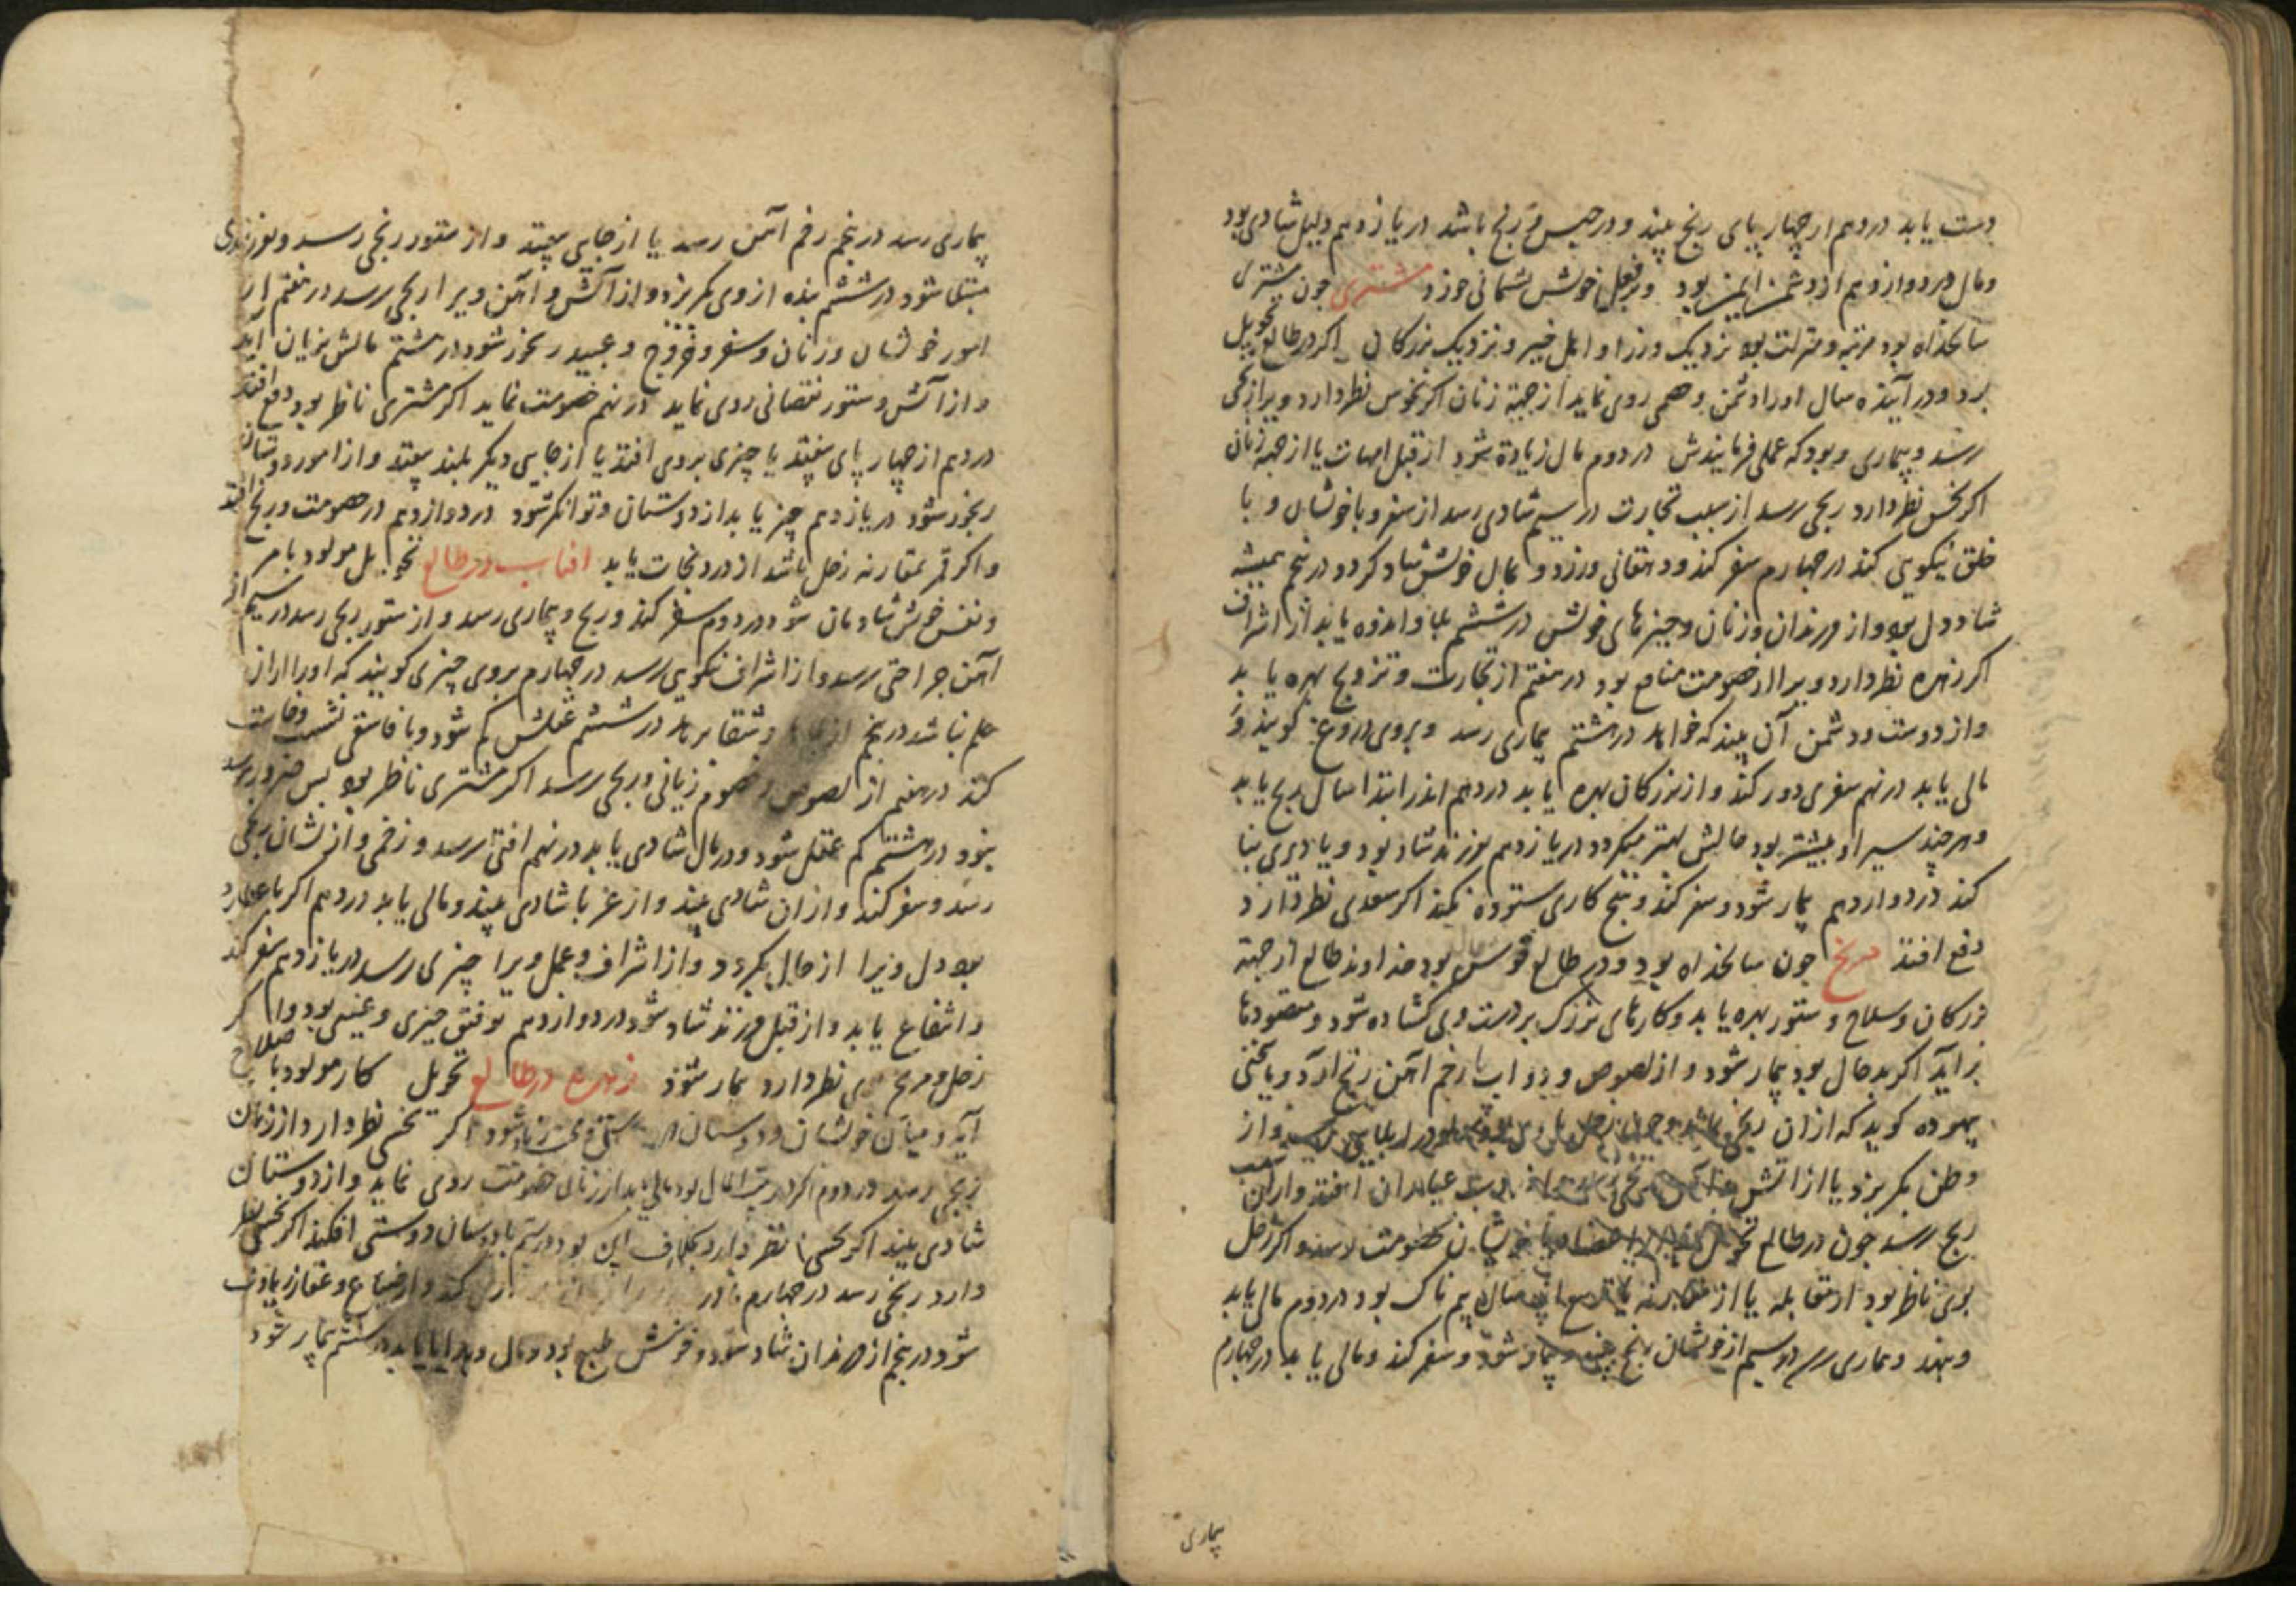 دست یابد در دهم از چهار پای رنج بیند و در حبس و رنج باشد در یازدهم دلیل شادی بود
ومال در دوازدهم از دشمن ایمن بود و بر فعل خویش پشیمانی خورد مشتری چون مشتری
سالخداه بود مرتبه و منزلت بود نزدیک وزرا و اهل خیر و نزدیک بزرکان اکر در طالع تحویل
بود و در آینده سال اورا دشمن و همی روی نماید از جهة زنان اکر نحوس نظر دارد ویرا رنجی
رسد و بیماری و بود که عملی فرمایندش در دوم مال زیادة شود از قبل امهات یا از جهة زنان
اکر نحس نظر دارد رنجی رسد از سبب تجارت در سیم شادی رسد از سفر و با خویشان و با
خلق نیکویی کند در چهارم سفر کند و دهقانی ورزد و بمال خویش شاد کردد در پنجم همیشه
شاد دل بود و از فرزندان و زنان و چیزهای خویش در ششم بلا و اندوه یابد از اشراف
اکر زهره نظر دارد ویرا از خصومت منافع بود در هفتم از تجارت و تزویج بهره یابد
و از دوست و دشمن آن بیند که خواهد در هشتم بیماری رسد و بروی دروغ کویند و
مالی یابد در نهم سفری دور کند و از بزرکان بهره یابد در دهم اندر ابتدا سال رنج یابد
و هر چند سیر او بیشتر بود حالش بهتر میکردد در یازدهم بفرزند شاد بود و یا دیری بنا
کند در دوازدهم بیمار شود و سفر کند و هیچ کاری ستوده نکند اکر سعدی نظر دارد
دفع افتد مریخ چون سالخداه بود و در طالع قوس بود خداوند طالع از جهة
بزرکان و سلاح و ستور بهره یابد و کارهای بزرک بر دست وی کشاده شود و مقصودها
برآید اکر بد حال بود بیمار شود و از لصوص و دواب یا زخم آهن رنج آرد و یا سخنی
بیهوده کوید که از آن رنجی
وطن بکریزد یا از آتش
رنج رسد چون در طالع تحویل با خویشان خصومت رسد و اکر زحل
بوی ناظر بود از مقابله یا از مقارنه یا تربیع این سال بیم ناک بود در دوم مال یابد
و بیماری رسد در سیم از خویشان رنج بیند و بیمار شود و سفر کند و مالی یابد در چهارم
بیماری
بیماری رسد در پنجم زخم آهن رسد یا از جایی بیفتد و از ستور رنجی رسد و بفرزندی
مبتلی شود در ششم بنده از وی بکریزد و از آتش و آهن ویرا رنجی رسد در هفتم از
امور خویشان و زنان و سفر و خروج و عبید رنجور شود در هشتم مالش بزیان آید
و از آتش و ستور نقصانی روی نماید در نهم خصومت نماید اکر مشتری ناظر بود دفع افتد
در دهم از چهار پای بیفتد یا چیزی بروی افتد یا از جایی دیکر بلند بیفتد و از امور دوستان
رنجور شود در یازدهم چیز یابد از دوستان و توانکر شود در دوازدهم در خصومت و رنج افتد
و اکر قمر بمقارنه زحل باشد از درد نجات یابد افتاب در طالع تحویل مولود با مر
و نفس خویش شادمان شود در دوم سفر کند و رنج و بیماری رسد و از ستور رنجی رسد در سیم از
آهن جراحتی رسد و از اشراف نیکویی رسد در چهارم بروی چیزی کویند که اورا از آن
علم نباشد در پنجم در ششم عقلش کم شود و با فاسقی نشست و خاست
کند در هفتم از لصوص و خصوم زیانی و رنجی رسد اکر مشتری ناظر بود بس ضرورت
نبود در هشتم کم عقل شود و در مال شادی یابد در نهم افتی رسد و زخمی و از نشان رنجی
رسد و سفر کند و از آن شادی بیند و از غربا شادی بیند و مالی یابد در دهم اکر با عطارد
بود دل ویرا از حال بکردد و از اشراف و عمل ویرا چیزی رسد در یازدهم سفر کند
و انتفاع یابد و از قبل فرزند شاد شود در دوازدهم توفیق چیزی و غیبی بود و اکر
زحل و مریخ نظر دارد بیمار شود زهره در طالع تحویل کار مولود با صلاح
آید و میان خویشان و دوستان اکر نحسی نظر دارد از زنان
رنجی رسد در دوم خصومت روی نماید و از دوستان
شادی بیند اکر نحسی نظر دارد بخلاف این بود در سیم با دوستان دوستی افکند اکر نحسی نظر
دارد رنجی رسد در چهارم کند و از ضیاع و عقار زیادت
شود در پنجم از فرزندان شاد شود و خوش طبع بود و مال و هدایا یابد در ششم بیمار شود